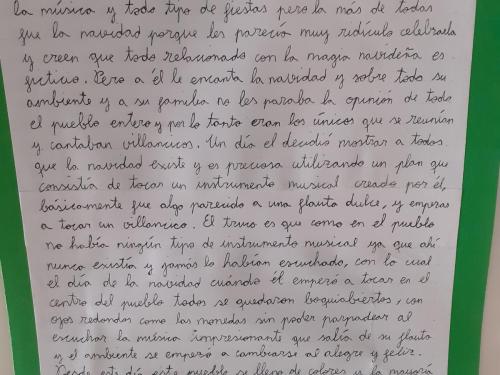 la música y todo tipo de fiestas pero la más de todas
fue la navidad porque les parecía muy ridículo celebrarla
y creen que todo relacionado con la magia navideña es
ficticio. Pero a él le encanta la navidad y sobre todo su
ambiente y a su familia no les paraba la opinión de todo
el pueblo entero y por lo tanto eran los únicos que se reunían
y cantaban villancicos. Un día el decidió mostrar a todos
que la navidad existe y es preciosa utilizando un plan que
consistía de tocar un instrumento musical creado por él,
básicamente fue algo parecido a una flauta dulce, y empezas
a tocar un villancico. El truco es que como en el pueblo
no había ningún tipo de instrumento musical ya que ahí
nunca existía y jamás lo habían escuchado, con lo cual
el día de la navidad cuándo él empezó a tocar en el
centro del pueblo todos se quedaron boquiabiertos, con
ojos redondos como las monedas sin poder parpadear al
escuchar la música impresionante que salía de su flauta
y el ambiente se empezó a cambiarse al alegre y feliz.
Desde este día este pueblo se lleno de colores y la mayoría